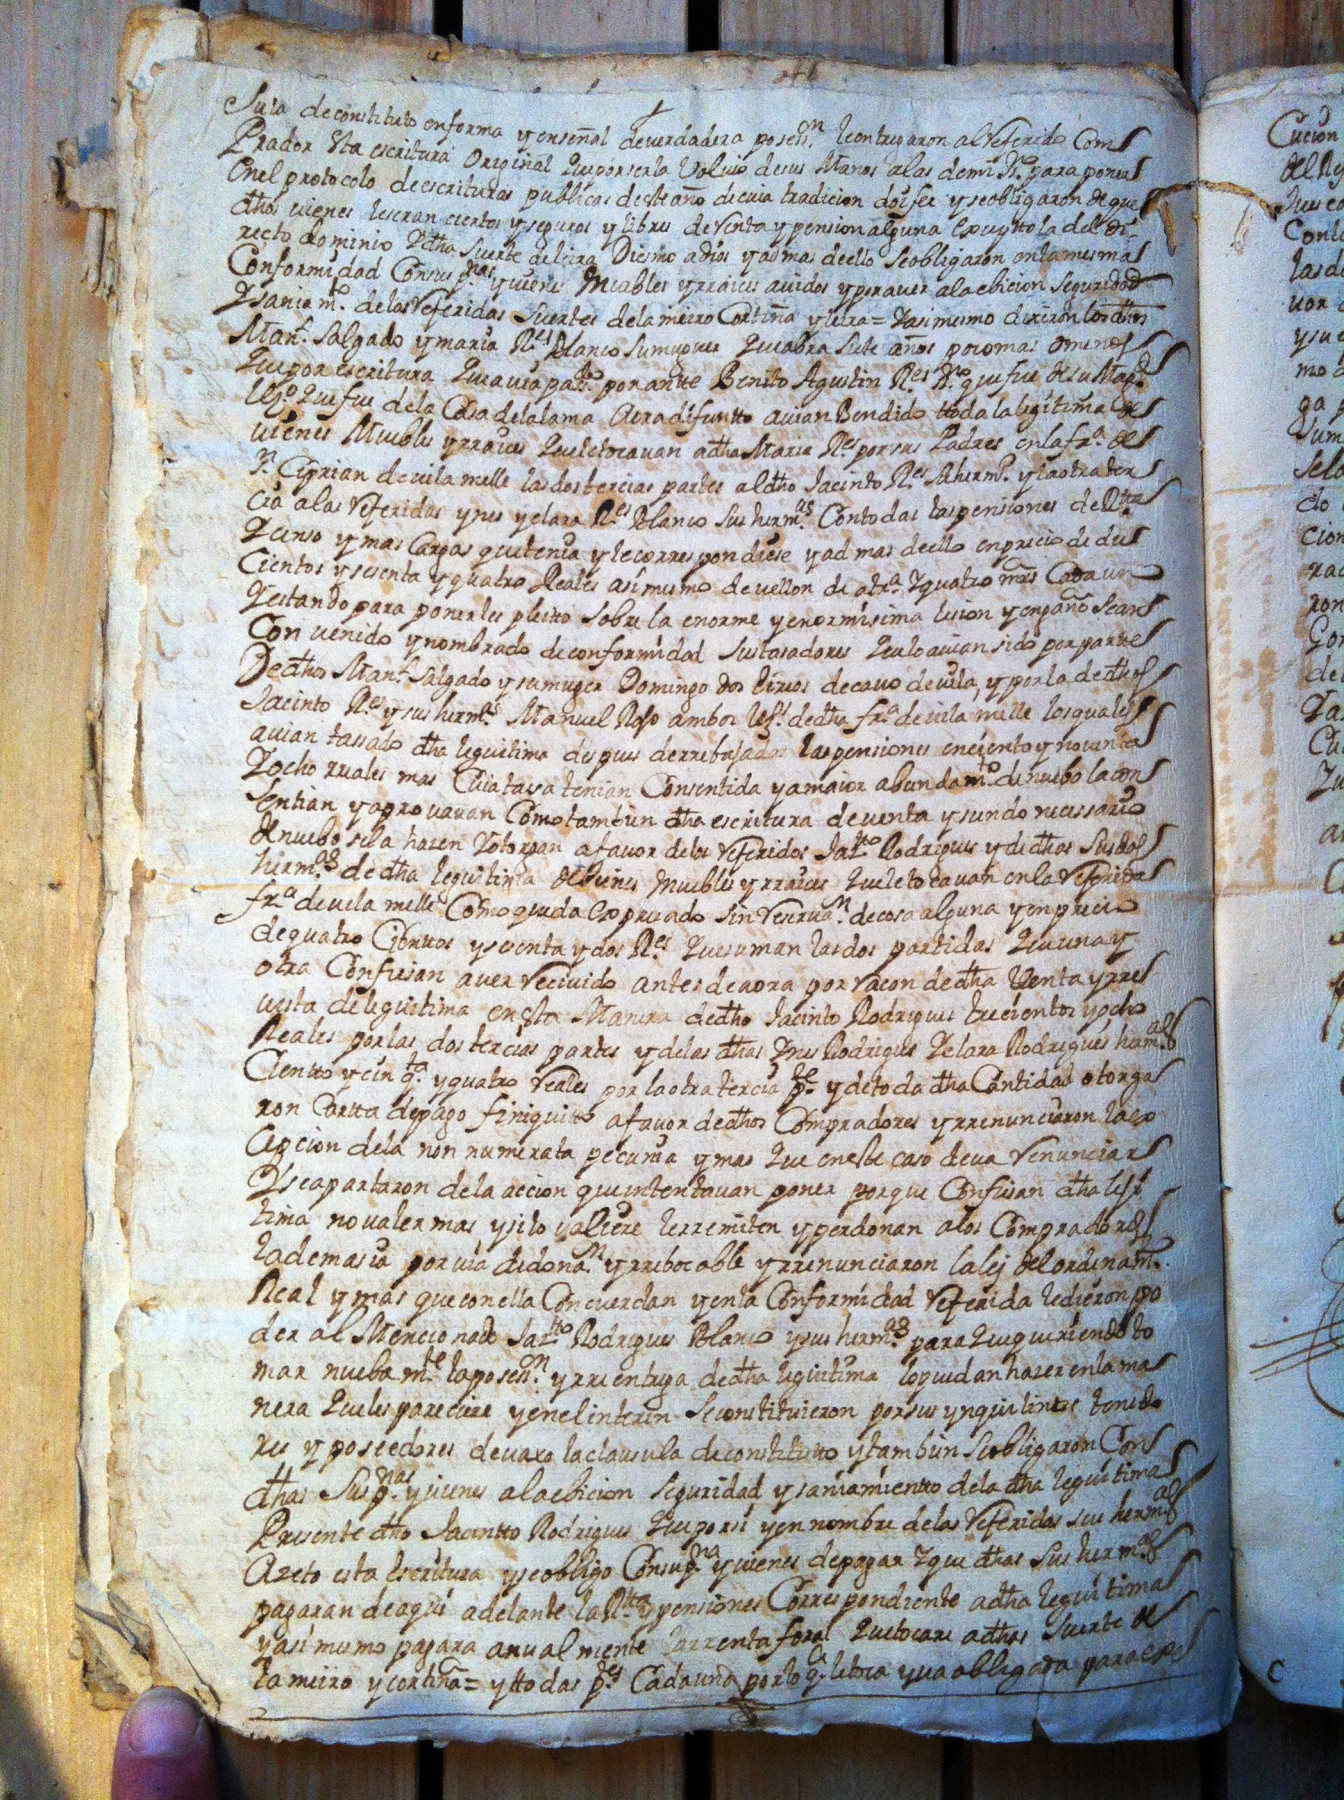 Sula de constituto en forma y en señal de verdadera posesn. le entregaron al Referido Com
Prador Esta escritura original que por serla Volvio de sus Manos alas de mi Sno. para poner
Enel protocolo de escrituras publicas deste año de cuia tradicion doi fee y se obligaron de que
dhos vienes lescran ciertos y seguros y libres de Renta y pension alguna Excepto la del di-
recto dominio Y dha Suerte de leira Diesmo a dios y a demas de ello se obligaron en la mesma
Conformidad Con sus pnas. y vienes Muebles y rraices avidos y por aver a la ebicion Seguridad
Y saniamto. de las Referidas Suertes de lameiro Cortiña y leira = Y asimesmo dixeron los dhos
Manl. Salgado y maria Res Blanco su muguer que abra Siete años poco mas o menos
que por escritura que avia pado. por antte Benito Agustin Res Sno. que fue de su Magd.
Vo. que fue dela Casa dela lama Aora difuntto avian Bendido toda la legitima de
vienes Muebles y rraices que le tocavan a dha Maria Res por sus Padres en la fra. de
Sn. Ciprian de vila melle las dos tercias partes al dho Jacinto Res su hermo. y la otra ter
cia a las Referidas ynes y clara Res Blanco sus hermas. Con todas las pensiones de Rta
Y censo y mas Cargas que tenia y le correspondiese y ad mas de ello en precio de dus
Cientos y sesenta y quatro Reales asi mesmo de vellon de a tra. Y quatro mrs Cada un
Y estando para ponerles pleitto sobre la enorme y enormisima lesion y engaño Se an
Con venido y nombrado de conformidad Sus tasadores que lo avian sido por parte
De dhos Manl. Salgado y su muger Domingo dos Eirios de cavo de vila, y por la de dhos
Jacinto Res y sus hermas. Manuel Roso ambos de dha fra. de vila melle los quales
avian tassado dha leguitima despues de rrebajadas las pensiones en ciento y noventa
Y ocho rreales mas Cuia tasa tenian Consentida y a maior abundamto. de nuebo la con
Sentian y aprovavan Como tambien dha escritura de venta y siendo nessesario
de nuebo se la hazen Y otorgan a favor delos Referidos Jazto Rodrigues y de dhas Sus dos
hermas. de dha leguitima de vienes muebles y rraices que le tocavan en la Referida
fra. de vila melle Como queda Expresado Sin Reservan. de cosa alguna y en precio
de quatro Cienttos y sesenta y dos Rs. que suman las dos partidas que una y
otra Confiesan aver Recivido antes de aora por racon de dha Venta y rre
vista de leguitima en Esta Manera de dho Jacinto Rodrigues trecientos y ocho
Reales por las dos tercias partes y de las dhas Ynes Rodrigues Y clara Rodrigues hermas
Cientto y cinqta. y quatro reales por la otra tercia pte y de toda dha Cantidad otorga
ron Cartta de pago finiquito a favor de dhos Compradores y rrenunciaron la ex
Cepcion dela non numerata pecunia y mas que en este caso deva renunciar
Y se apartaron dela accion que intentavan poner porque Confiesan dha legi
tima no valer mas y si lo valiere le rremiten y perdonan a los Compradores
la demasia por via de donan. yrrebocable y rrenunciaron la lej del ordenamto.
Real y mas que con ella Concuerdan y en la Conformidad Referida le dieron po
der al Mencionado Jazto Rodrigues Blanco y sus hermas. para que queriendo to
mar nuebamte. la posesn. y rre entrega de dha leguitima lo puedan hazer en la ma
nera que les pareciere y en el interin Se constituieron por sus ynquilinos tenedo
res y poseedores devaxo la clausula de constitutto y tambien Se obligaron Con
dhas Sus pnas. y vienes a la ebicion Seguridad y saniamientto dela dha leguitima
Presente dho Jacintto Rodrigues que por si y en nombre delas Referidas seus hermas
Azeto esta Escritura y se obligo Con su pna y vienes de pagar Y que dhas Sus hermas
pagaran de aqui adelante la Rta y pensiones Correspondiente a dha leguitima
y asi mesmo pagara anualmente la rrenta foral que tocare a dhas Suerte de
lameiro y cortiña = y ttodas ptes Cada uno por lo q. le toca y va obligada para exe